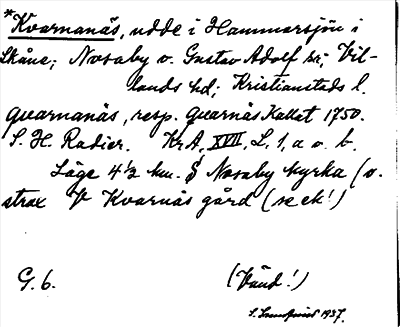 *Kvarnanäs, udde i Hammarsjön i
Skåne; Nosaby o. Gustav Adolf sn; Vil-
lands hd; Kristianstads l.
Qvarnanäs, resp. Qvarnäs Kallet 1750.
S. H. Radier. KrA, XVII, L, 1, a o. b.
Läge 4½ km. S Nosaby kyrka (o.
strax V Kvarnäs gård (se ek!)
G. 6.
(Vänd!)
1937.